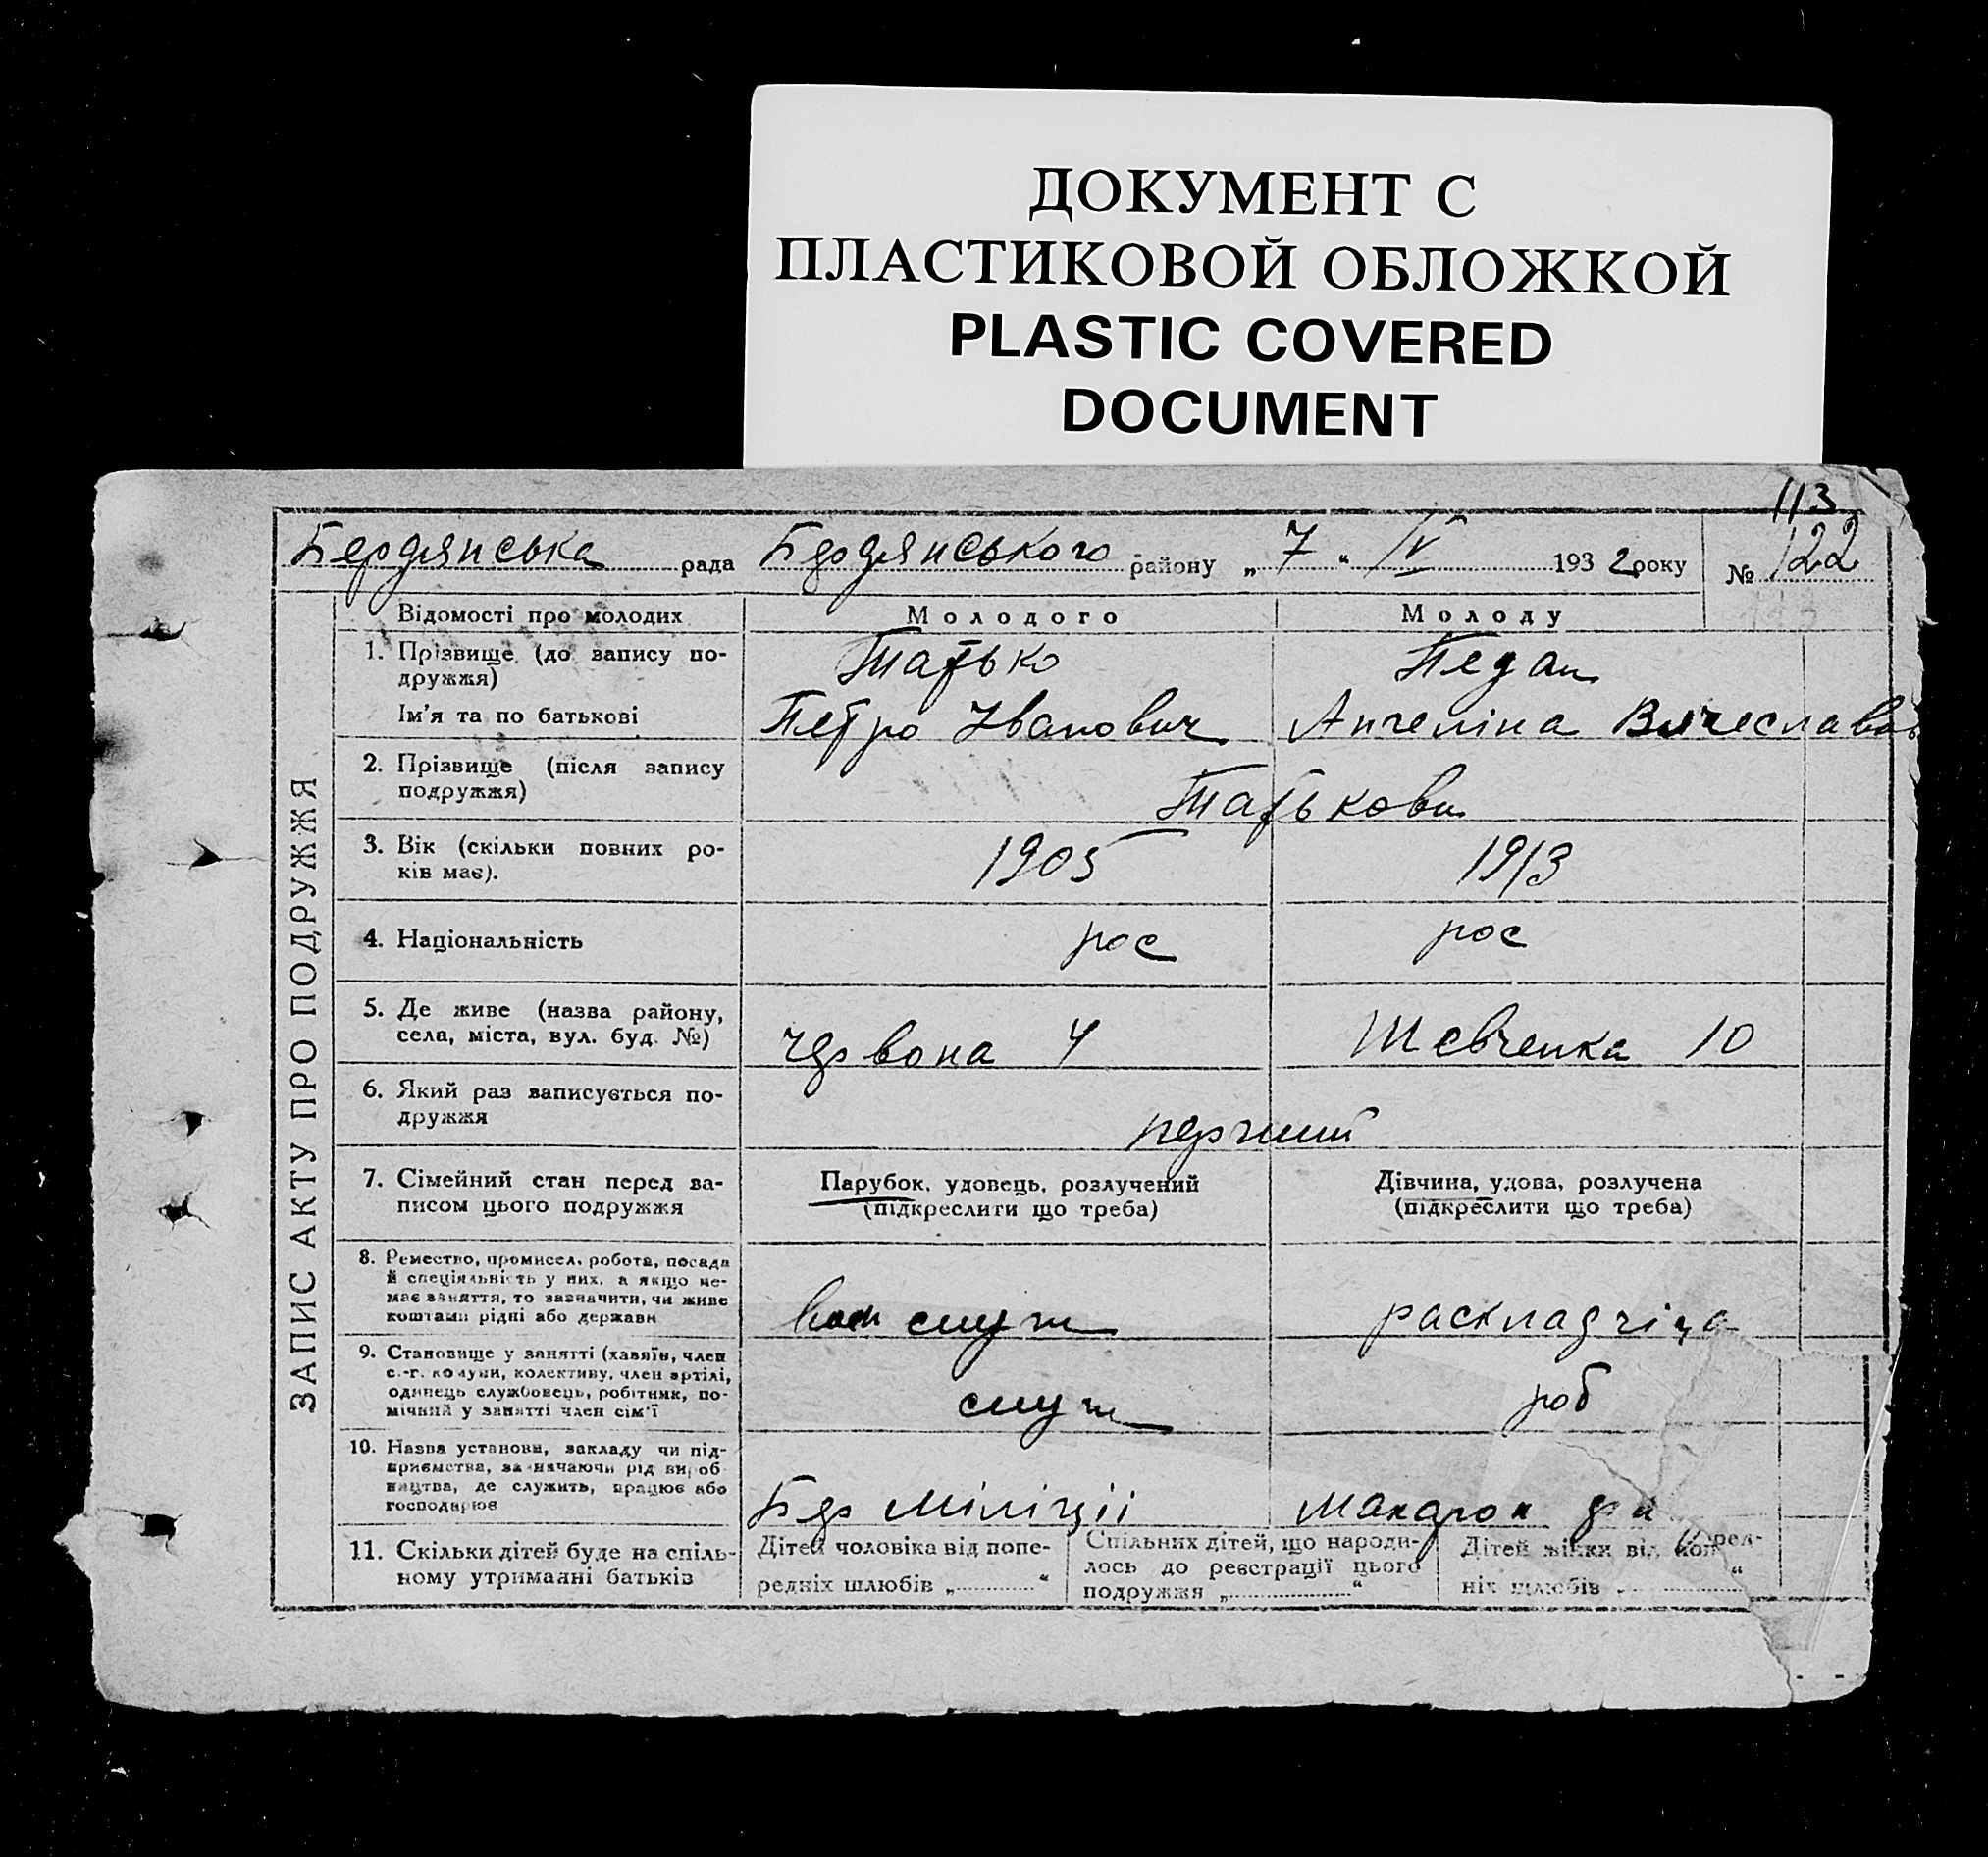 ДОКУМЕНТ С
ПЛАСТИКОВОЙ ОБЛОЖКОЙ
PLASTIC COVERED
DOCUMENT
113
Бердянська рада Бердянського району „7“ IV 1932 року № 122
ЗАПИС АКТУ ПРО ПОДРУЖЖЯ
Відомості про молодих Молодого Молоду
1. Прізвище (до запису по-
дружжя)
Педан
Ім'я та по батькові Петро Іванович Ангеліна Вячеславов
2. Прізвище (після запису
подружжя)
3. Вік (скільки повних ро-
ків має). 1905 1913
4. Національність рос рос
5. Де живе (назва району,
села, міста, вул. буд. №) Червона 4 Шевченка 10
6. Який раз записується по-
дружжя перший
7. Сімейний стан перед за-
писом цього подружжя
Парубок, удовець, розлучений
(підкреслити що треба)
Дівчина, удова, розлучена
(підкреслити що треба)
8. Ремество, промисел, робота, посада
й спеціяльність у них, а якщо не-
має заняття, то зазначити, чи живе
коштами рідні або держави
служ раскладчіца
9. Становище у занятті (хазяїн, член
с.-г. комуни, колективу, член артілі,
одинець службовець, робітник, по-
мічний у занятті член сім'ї
служ роб
10. Назва установи, закладу чи під-
приємства, зазначаючи рід вироб-
ництва, де служить, працює або
господарює
Бер Міліції Макарон
11. Скільки дітей буде на спіль-
ному утриманні батьків
Дітей чоловіка від попе-
редніх шлюбів „ “
Спільних дітей, що народи-
лось до реєстрації цього
подружжя „ “
Дітей жінки від попред-
ніх шлюбів „ “